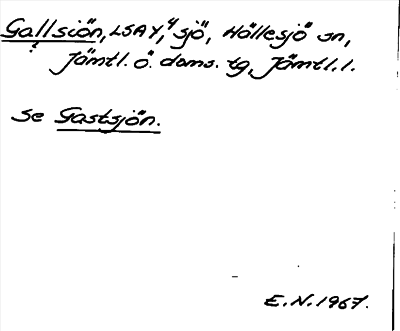 Gallsiön, LSAY, "sjö", Hällesjö sn,
Jämtl. ö. doms. tg, Jämtl. l.
Se Gastsjön.
E.N. 1967.